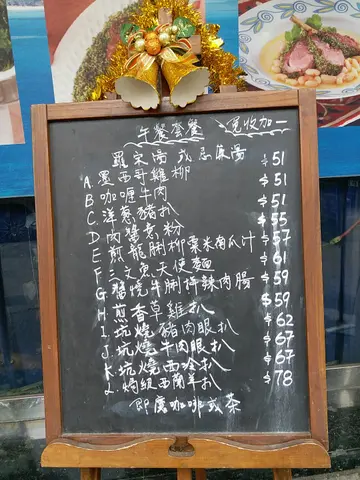 午餐套餐 免收加一
羅宋湯 或 忌廉湯
A. 墨西哥雞柳 $51
B 咖喱牛肉 $51
C 洋蔥豬扒 $51
D 肉醬意粉 $55
E 煎龍脷柳粟米南瓜汁 $57
F 三文魚天使麵 $61
G 醬燒牛脷伴辣肉腸 $59
H. 煎香草雞扒 $59
I. 坑燒豬肉眼扒 $62
J. 坑燒牛肉眼扒 $67
K. 坑燒西冷扒 $67
L. 西蘭羊扒 $78
即磨咖啡或茶